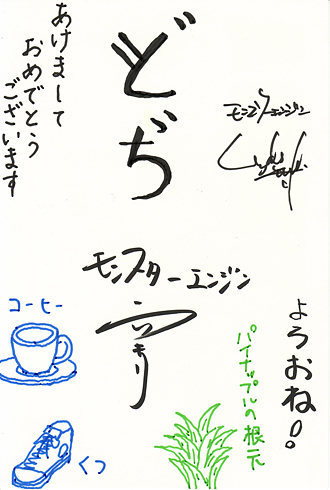 あけまして
おめでとう
ございます
どぢ
モンスターエンジン
モンスターエンジン
コーヒー
くつ
パイナップルの根元
よろおね!!